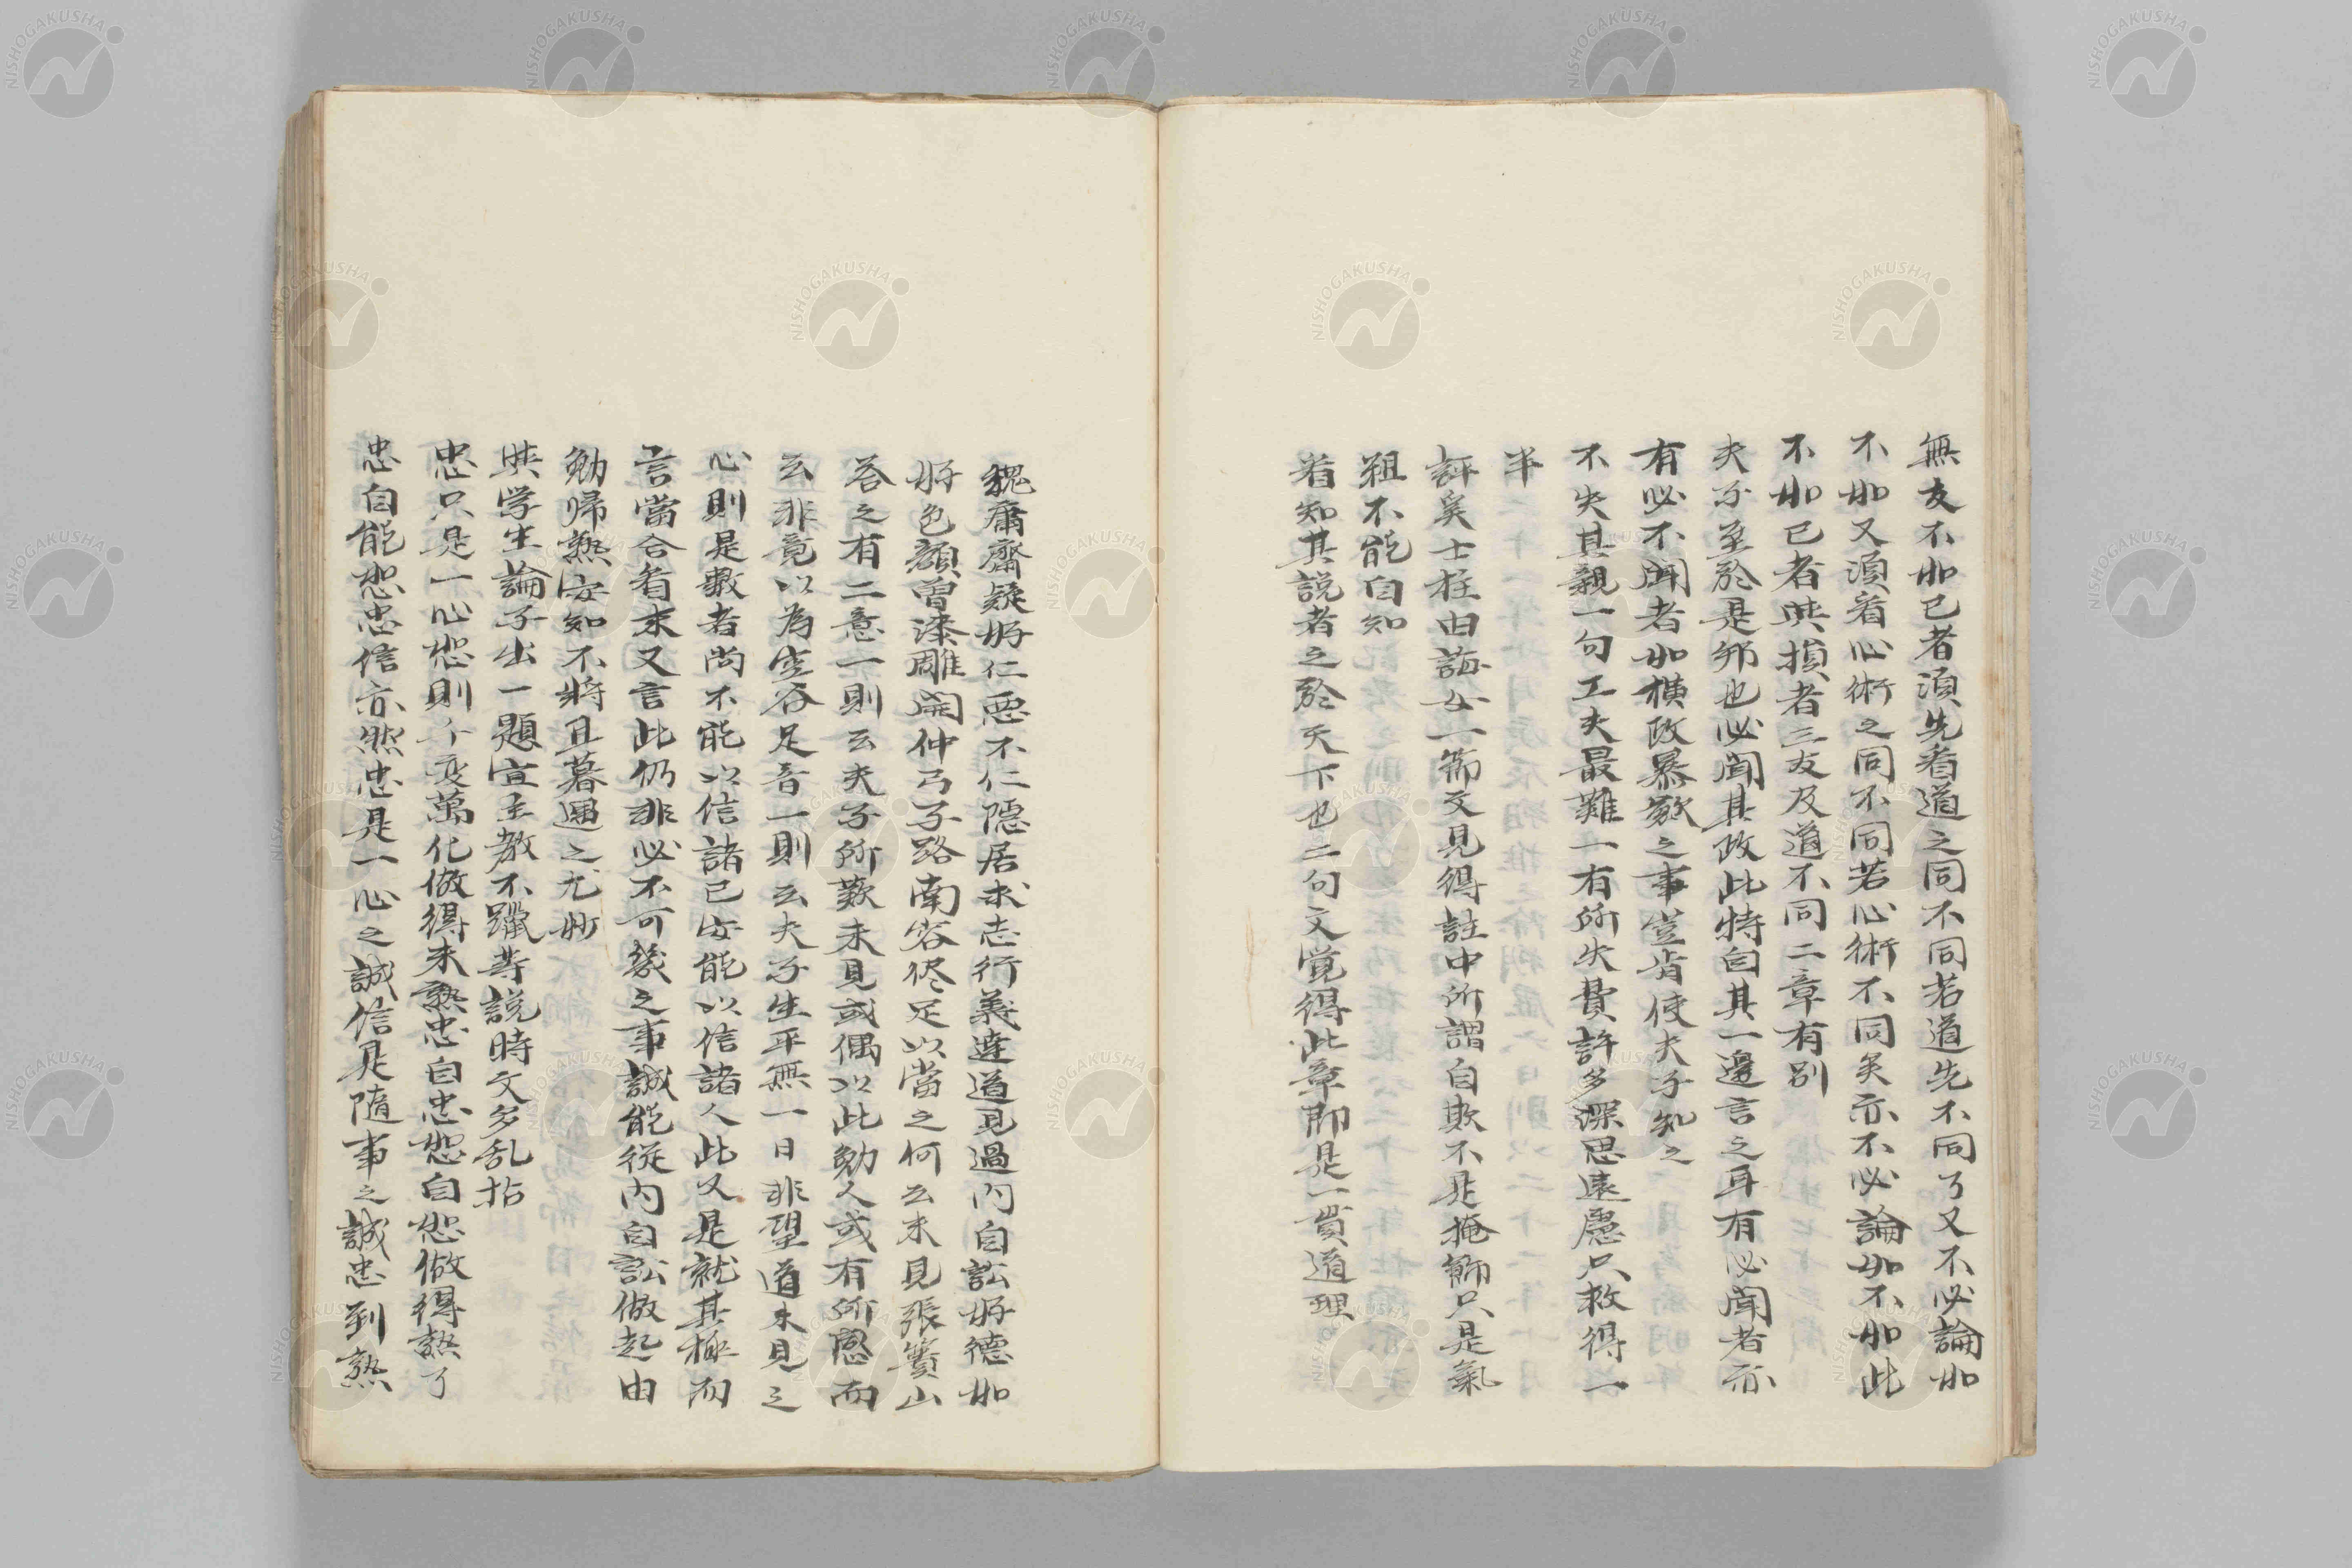 無友不如已者湏先看道之同不同若道先不同了又不必論如
不如又湏看心術之同不同若心術不同矣亦不必論如不如此
不如已者與損者三友及道不同二章有別
夫子至於是邦也必聞其政此特自其一邊言之耳有必聞者亦
有必不聞者如橫政暴斂之事豈肯使夫子知之
不失其親一句工夫最難一有所失費許多深思遠慮只救得一
半
評奚士柱由誨女一節文見得註中所謂自欺不是掩飾只是氣
粗不能自知
看知其説者之於天下也二句文覚得此章即是一貫道理
魏庸齋疑好仁惡不仁隱居求志行義達道見過內自訟好德如
好色顏曾漆雕開仲弓子路南容侭足以當之何云未見張簣山
答之有二意一則云夫子所歎未見或偶以此勉人或有所感而
云非竟以為空谷足音一則云夫子生平無一日非望道未見之
心則是數者尚不能以信諸已安能以信諸人此又是就其極而
言當合看末又言此仍非必不可幾之事誠能從內自訟做起由
勉歸熟安知不將旦暮遇之尤妙
與学生論子出一題宜主教不躐等説時文多乱拈
忠只是一心恕則千变萬化做得未熟忠自忠恕自恕做得熟了
忠自能恕忠信亦然忠是一心之誠信是隨事之誠忠到熟
NISHOGAKUSHA